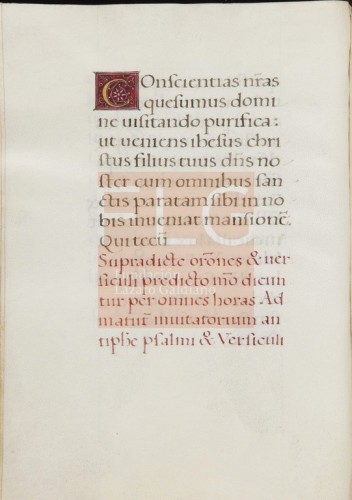 Conscientias nr̃as
quesumus domi
ne uisitando purifica:
ut ueniens ihesus chri
stus filius tuus dñs no
ster cum omnibus san
ctus paratam sibi in no
bis inueniat mansionẽ.
Qui tecũ
Supradicte orõnes & uer
siculi predicto mõ dicun
tur per omnes horas Ad
matut̃ inuitatorium an
tiphe psalmi & Versiculi
FLG
Fundación
Lázaro Galdiano